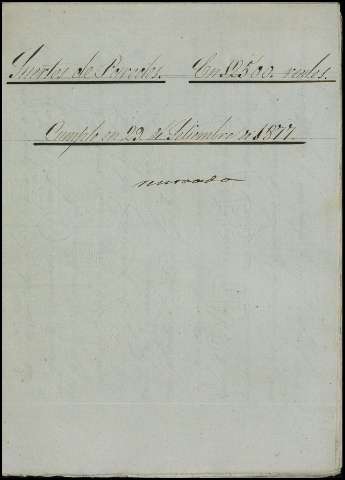 Suertes de Barcelos. En 12500 reales.
Cumple en 29 de Setiembre de 1877.
renovado